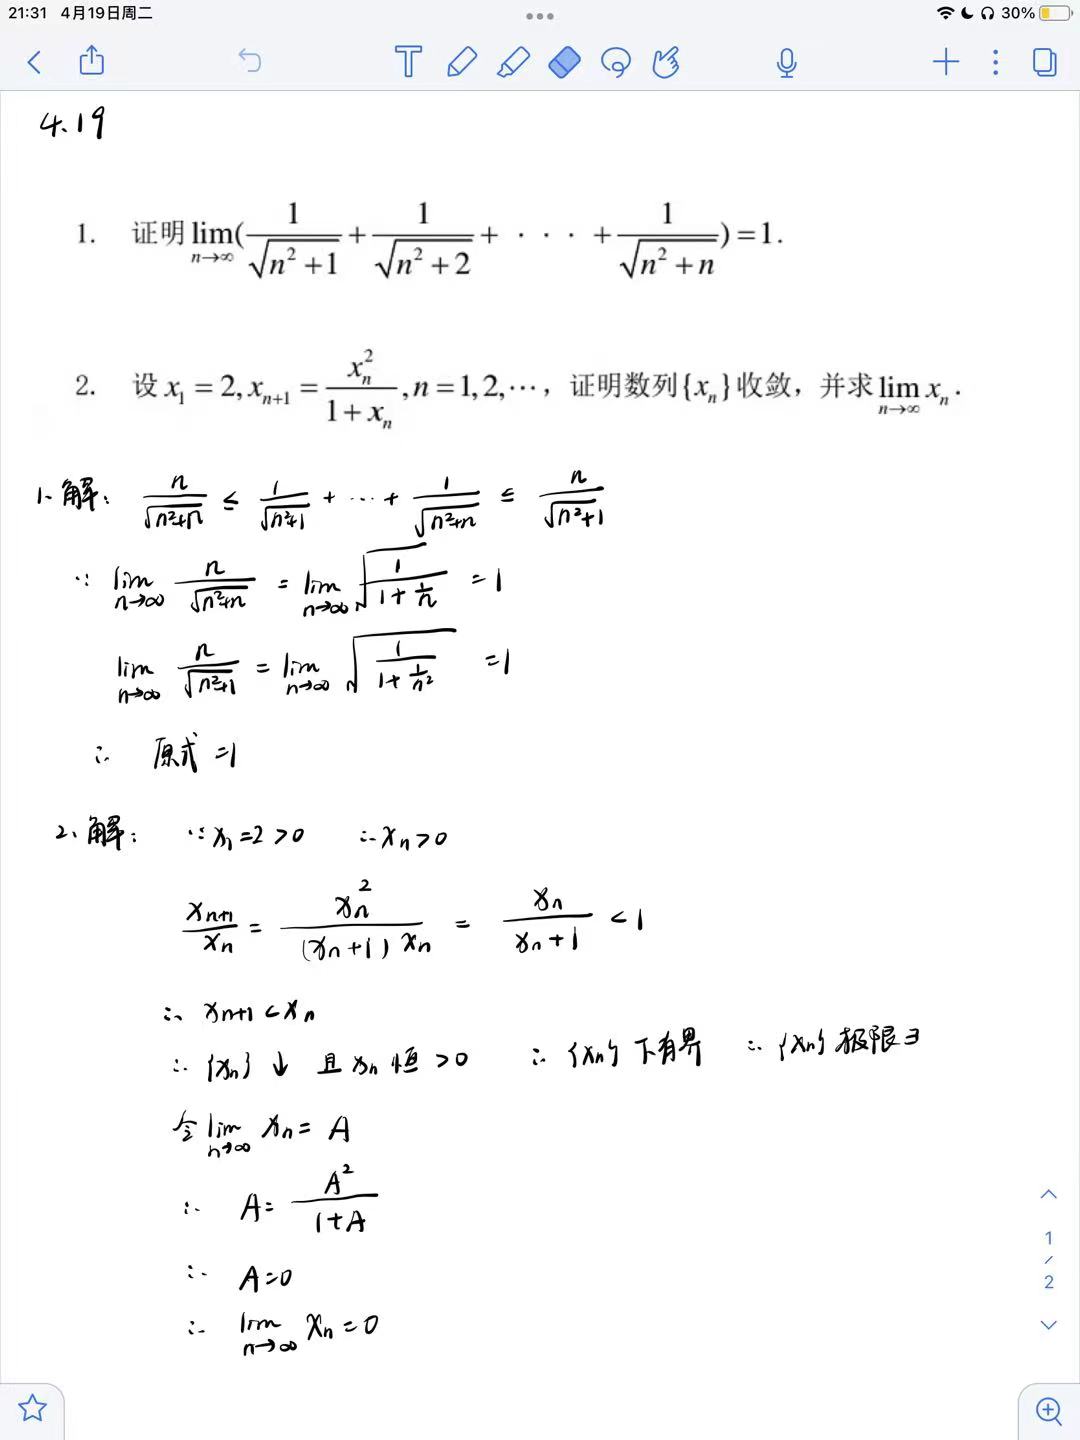 21:31 4月19日周二 30%
4.19
1. 证明 lim(n→∞) (1/√(n²+1) + 1/√(n²+2) + · · · + 1/√(n²+n)) = 1.
2. 设 x₁ = 2, xₙ₊₁ = xₙ²/(1+xₙ), n = 1, 2, ⋯, 证明数列{xₙ}收敛，并求 lim(n→∞) xₙ.
1、解： n/√(n²+n) ≤ 1/√(n²+1) + ⋯ + 1/√(n²+n) ≤ n/√(n²+1)
∵ lim(n→∞) n/√(n²+n) = lim(n→∞) √(1/(1+1/n)) = 1
lim(n→∞) n/√(n²+1) = lim(n→∞) √(1/(1+1/n²)) = 1
∴ 原式 = 1
2、解： ∵ x₁ = 2 > 0 ∴ xₙ > 0
xₙ₊₁/xₙ = xₙ²/((xₙ+1) xₙ) = xₙ/(xₙ+1) < 1
∴ xₙ₊₁ < xₙ
∴ {xₙ} ↓ 且 xₙ 恒 > 0 ∴ {xₙ} 下有界 ∴ {xₙ} 极限∃
令 lim(n→∞) xₙ = A
∴ A = A²/(1+A)
∴ A = 0
∴ lim(n→∞) xₙ = 0
1
/
2